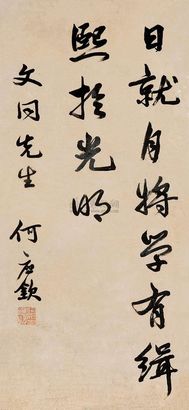 日就月将学有缉
熙于光明
文同先生
何应钦